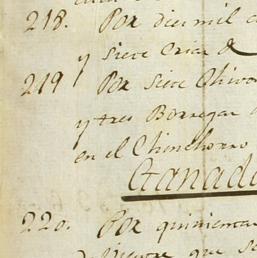 218. Por diez mil
y siete Crias de
219 Por siete Chivos
y tres Borregas
en el Chinchorro
Ganado
220. Por quinientas